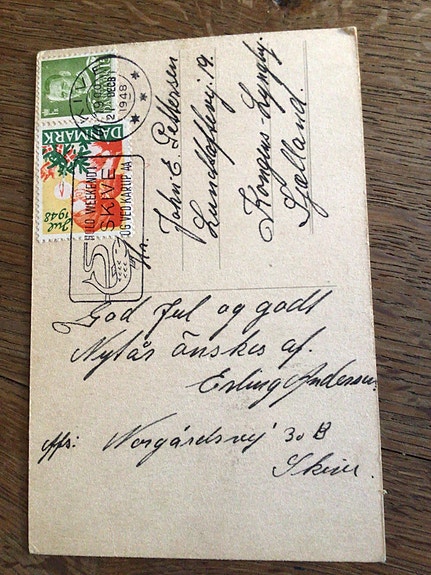 DANMARK
Jul
1948
HOLD WEEKEND I
SKIVE
OG VED KARUP AA
Hr.
John E. Pettersen
Lundtoftevej 19.
Kongens-Lyngby.
Sjælland.
God Jul og godt
Nytår önskes af.
Erling Andersen.
Afs: Norgårdsvej 30 B
Skive.